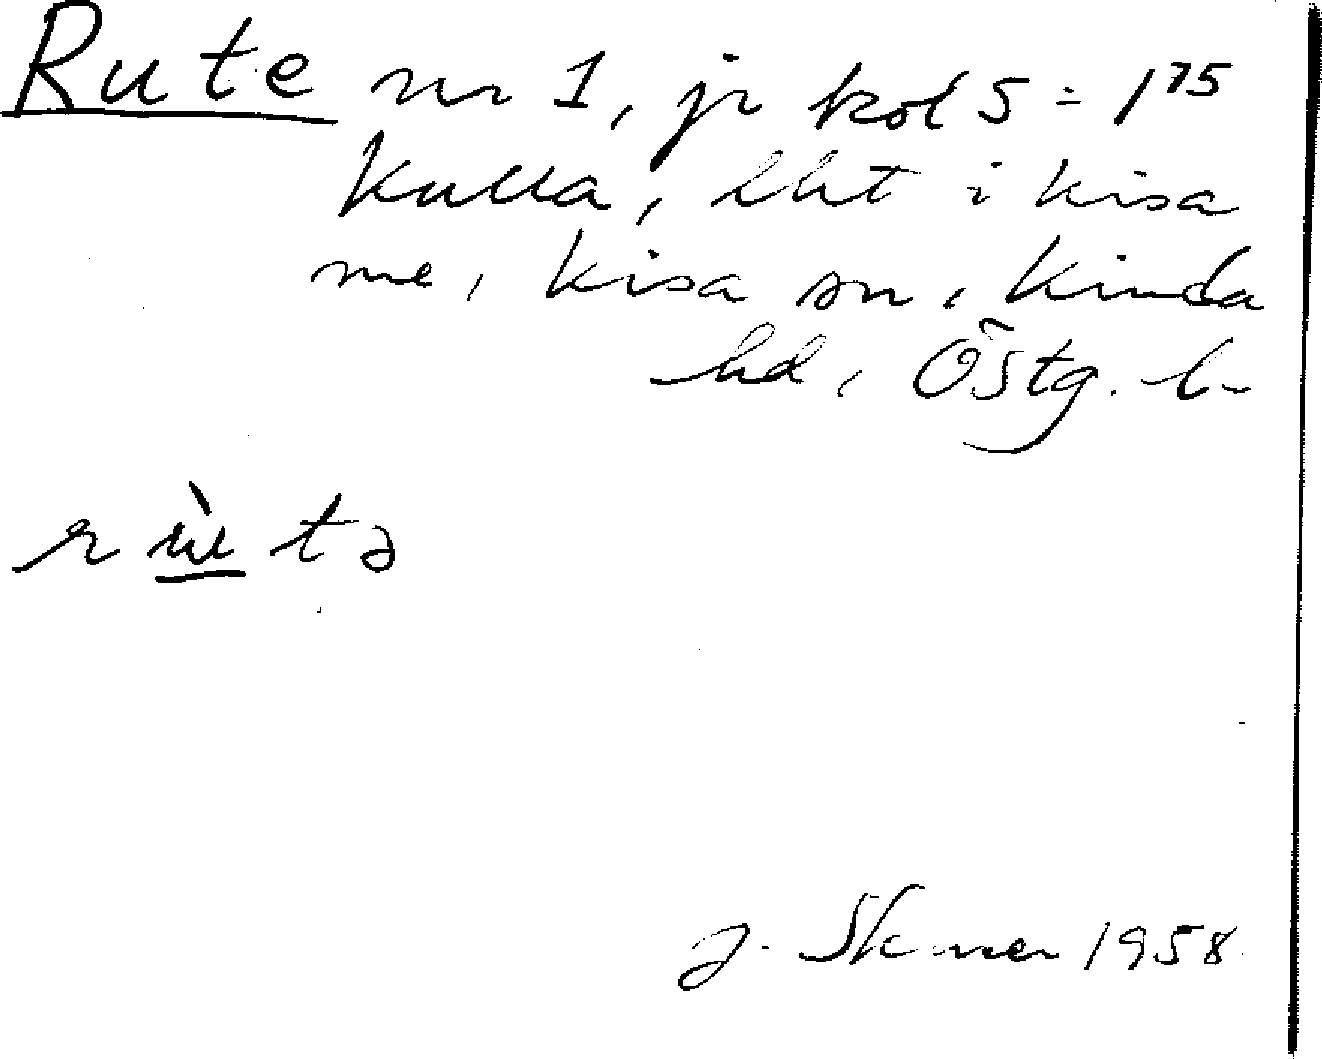 Rute nr 1, jr kol 5 = 1⁷⁵
Kulla, lht i Kisa
me, Kisa sn, Kinda
hd, Östg. l.
rùtə
J. 1958